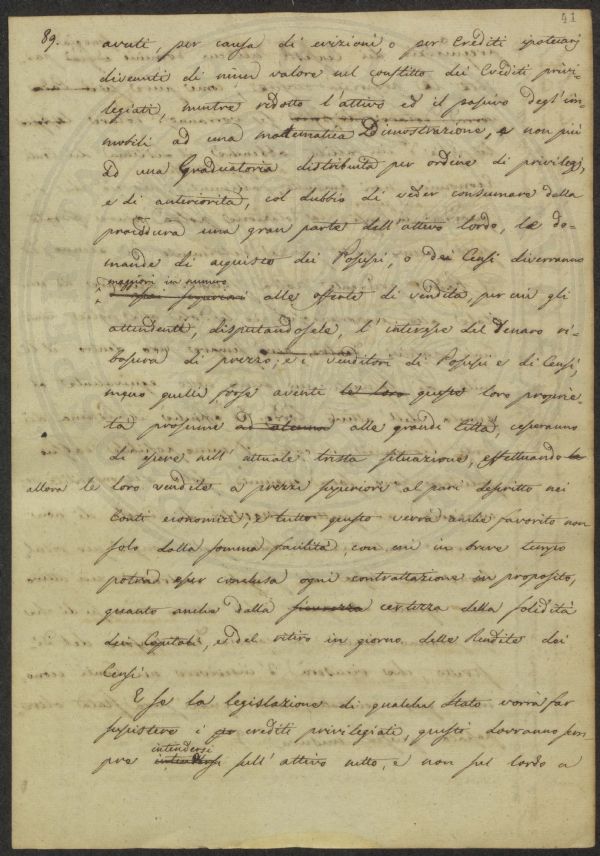 41
89.
avuti, per causa di evizioni, o per Crediti ipotecarj
divenuti di minor valore nel conflitto dei Crediti privi-
legiati, mentre ridotto l'attivo ed il passivo degl'im-
mobili ad una matematica Dimostrazione, e non più
ad una Graduatoria distribuita per ordine di privilegj,
e di anteriorità, col dubbio di veder consumare dalla
procedura una gran parte dell'attivo lordo, le do-
mande di acquisto dei Possessi, o dei Censi diverranno
maggiori in numero
assai superiori alle offerte di vendita, per cui gli
attendenti, disputandosele, l'interesse del Denaro ri-
basserà di prezzo; e i venditori di Possessi e di Censi,
meno quelli forse aventi le loro queste loro proprie-
tà prossime ad alcune alle grandi Città, cesseranno
di essere nell'attuale trista situazione, effettuando le
allora le loro vendite a prezzi superiori al pari descritto nei
Conti economici; e tutto questo verrà anche favorito non
solo dalla somma facilità, con cui in breve tempo
potrà esser conclusa ogni contrattazione in proposito,
quanto anche dalla sicurezza certezza della solidità
dei Capitali, e del ritiro in giorno delle Rendite dei
Censi
E se la legislazione di qualche Stato vorrà far
sussistere i crediti privilegiati, questi dovranno sem-
intendersi
pre intendersi sull'attivo netto, e non sul lordo a